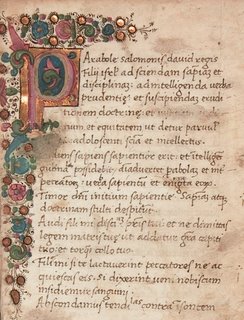 Parabole salomonis david regis
Filij isrl' ad sciendam sapiaz et
disciplinaz: ad intelligenda verba
prudentie: et suscipiendaz erudi
tionem doctrine: et
cium et equitatem ut detur parvul
adolescenti scia et intellectus.
sapiens sapientior erit: et itelliges
possidebit: adiavertet pabolaz et int
pretatoez: verba sapientū et enigta eoɋ.
Timor dni initium sapientie Sapiaz atq
doctrinam stulti despiciut.
Audi fili mi pris tui: et ne dimitas
legem matris tue: ut addatur gra capiti
tuo: et torq collo tuo.
Fili mi si te lactaverint peccatores ne ac
quiescas eis: si dixerint veni nobiscum
insidiemur sanguini.
Abscondamus tendiculas contra isontem